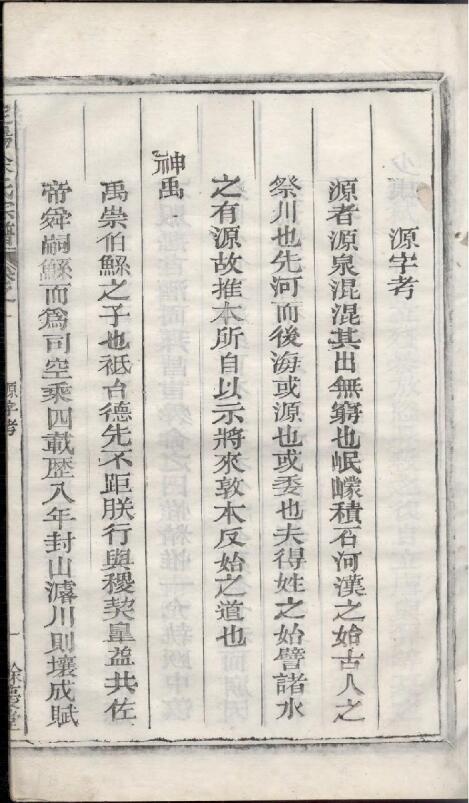 源字考
源者源泉混混其出無窮也岷嶓積石河漢之始古人之
祭川也先河而後海或源也或委也夫得姓之始譬諸水
之有源故推本所自以示將來敦本反始之道也
神禹
禹崇伯鯀之子也祗台德先不距朕行與稷契臯益共佐
帝舜嗣鯀而爲司空乘四載歷八年封山濬川則壤成賦
余氏宗譜
源字考
一
餘慶堂